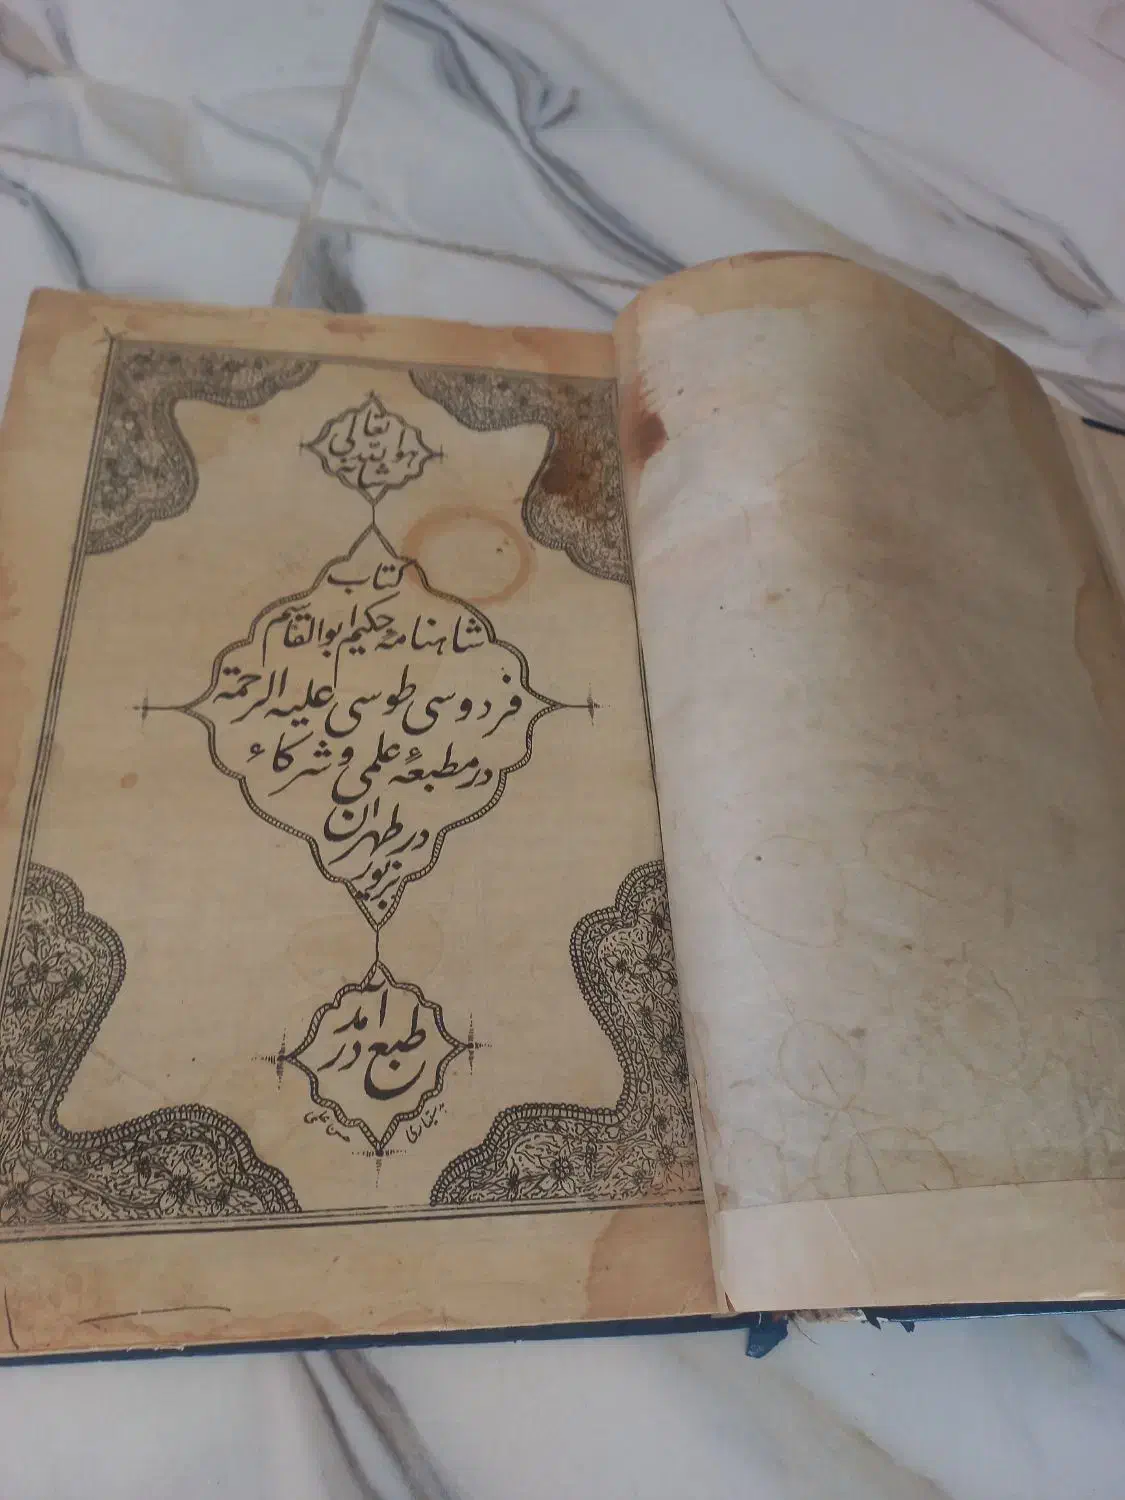 هو الله
تعالی
شانه
کتاب
شاهنامهٔ حکیم ابوالقاسم
فردوسی طوسی علیه الرحمة
در مطبعهٔ علمی و شرکاء
در طهران
بزیور
طبع در آمد
حسن علمی